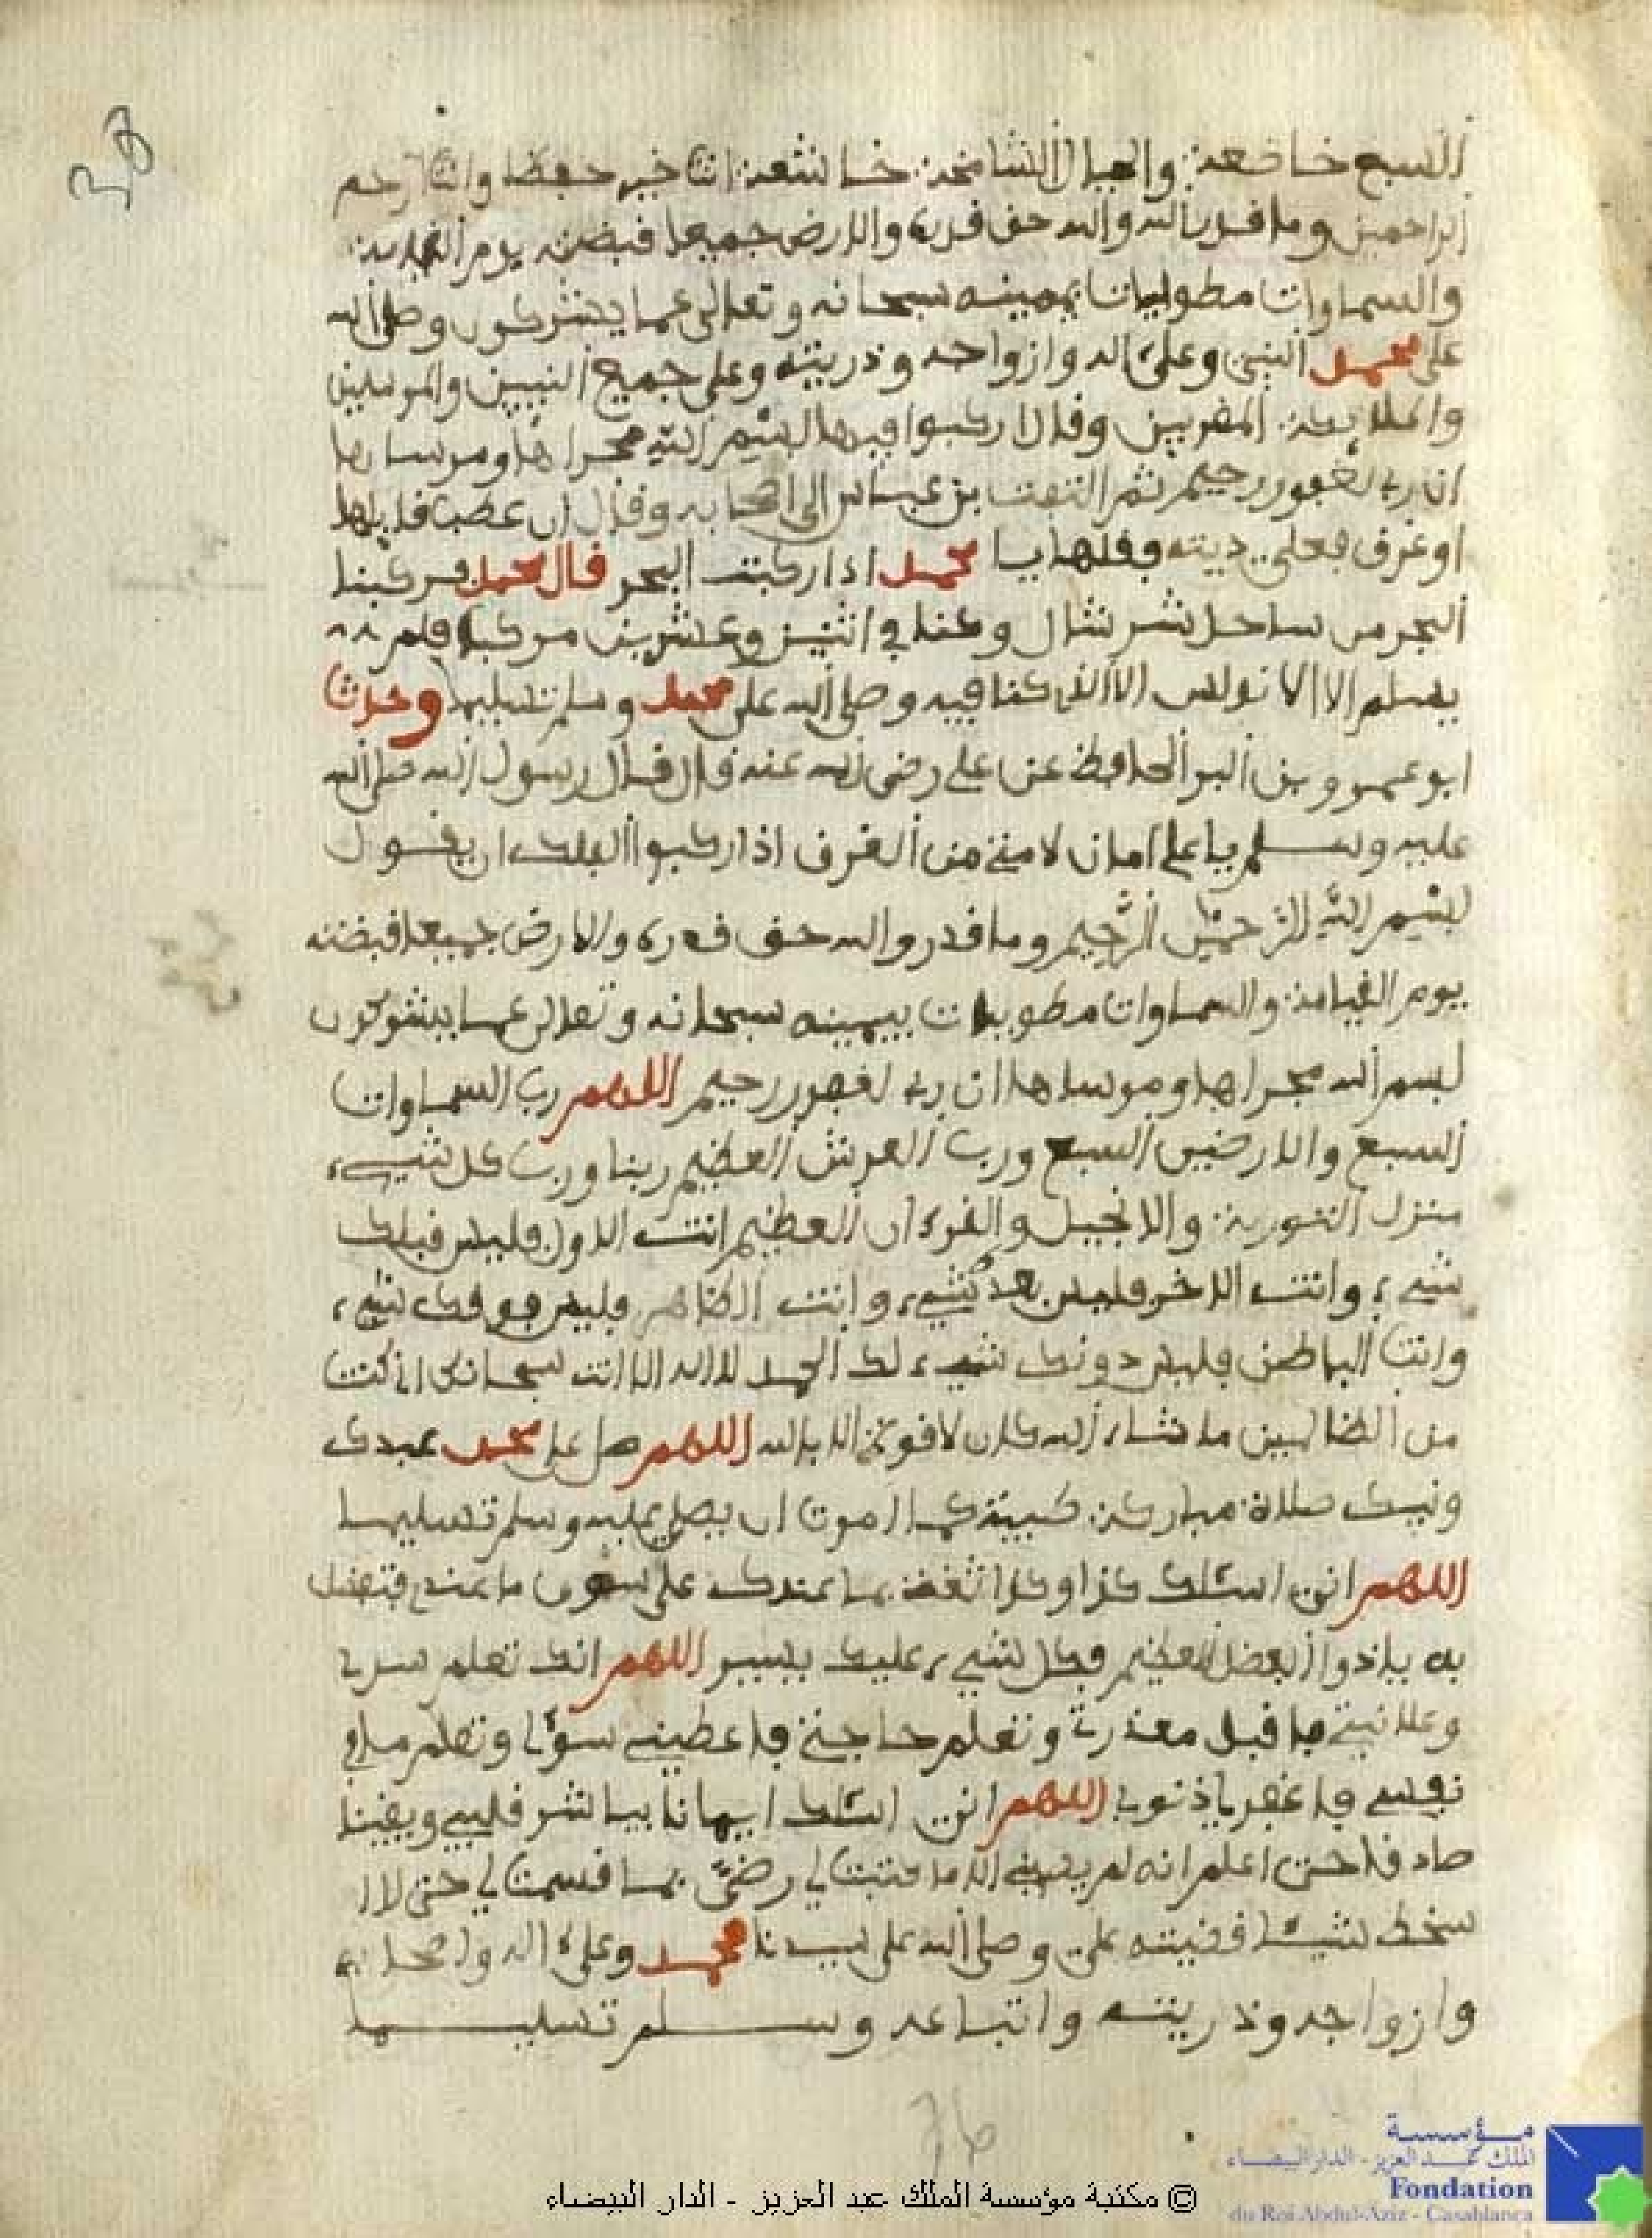 السبع خاضعة والجبال الشامخة خاشعة انت خير حفظا وانت ارحم
الراحمين وما قدروا الله حق قدره والارض جميعا قبضته يوم القيامة
والسماوات مطويات بيمينه سبحانه وتعالى عما يشركون وصلى الله
على محمد النبي وعلى ءاله وازواجه وذريته وعلى جميع النبيين والمرسلين
والملايكة المقربين وقال اركبوا فيها بسم الله مجراها ومرساها
ان ربي لغفور رحيم ثم التفت بن عباس الى اصحابه وقال ان عطب قايلها
او غرق فعلي ديته وقلها يا محمد اذا ركبت البحر قال محمد فركبنا
البحر من ساحل شرشال وكنا في اثنين وعشرين مركبا فلم
يسلم الا الذي كنا فيه وصلى الله على محمد وسلم تسليما وحدث
ابو عمرو بن البر الحافظ عن علي رضي الله عنه قال قال رسول الله صلى الله
عليه وسلم يا علي امان لامتي من الغرق اذا ركبوا الفلك ان يقول
بسم الله الرحمن الرحيم وما قدروا الله حق قدره والارض جميعا قبضته
يوم القيامة والسماوات مطويات بيمينه سبحانه وتعالى عما يشركون
بسم الله مجراها ومرساها ان ربي لغفور رحيم اللهم رب السماوات
السبع والارضين السبع ورب العرش العظيم ربنا ورب كل شيء
منزل التورية والانجيل والقرءان العظيم انت الاول فليس قبلك
شيء وانت الاخر فليس بعدك شيء وانت الظاهر فليس فوقك شيء
وانت الباطن فليس دونك شيء لك الحمد لا اله الا انت سبحانك اني كنت
من الظالمين ما شاء الله كان لا قوة الا بالله اللهم صل على محمد عبدك
ونبيك صلاة مباركة طيبة كما امرت ان يصلى عليه وسلم تسليما
اللهم اني اسئلك كذا وكذا ثقة بما عندك على سوى ما عندي فتفضل
به يا ذو الفضل العظيم فكل شيء عليك يسير اللهم انك تعلم سري
وعلانيتي فاقبل معذرتي وتعلم حاجتي فاعطني سؤلي وتعلم ما في
نفسي فاغفر لي ذنوبي اللهم اني اسئلك ايمانا يباشر قلبي ويقينا
صادقا حتى اعلم انه لم يصيبني الا ما كتبت لي رضى بما قسمت لي حتى لا
سخط شيئا قضيته علي وصلى الله على سيدنا محمد وعلى ءاله واصحابه
وازواجه وذريته واتباعه وسلم تسليما
76
© مكتبة مؤسسة الملك عبد العزيز - الدار البيضاء
مؤسسة
الملك عبد العزيز - الدار البيضاء
Fondation
du Roi Abdul-Aziz - Casablanca